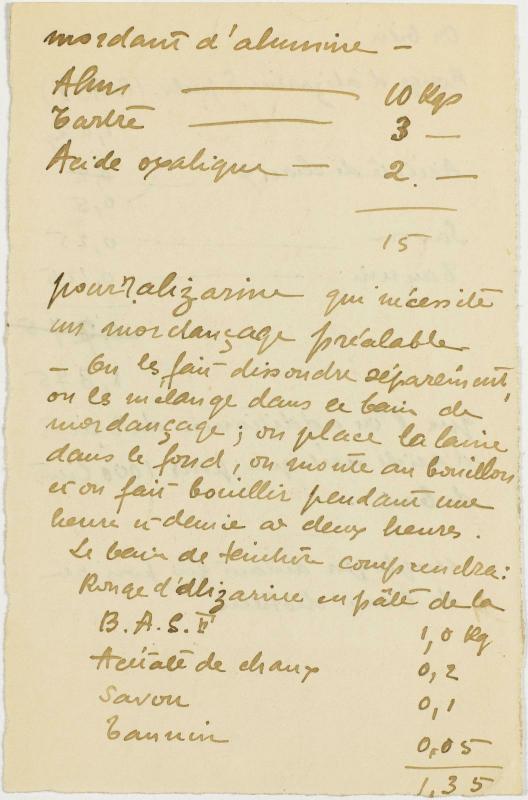 mordant d'alumine —
Alun ——— 10 Kgs
Tartre ——— 3 —
Acide oxalique — 2. —
15
pour l'alizarine qui nécessite
un mordançage préalable
— On les fait dissoudre séparément,
on les mélange dans le bain de
mordançage ; on place la laine
dans le fond, on monte au bouillon
et on fait bouillir pendant une
heure et demie à deux heures.
Le bain de teinture comprendra :
Rouge d'alizarine en pâte de la
B. A. S. F 1,0 Kg
Acétate de chaux 0,2
Savon 0,1
Tannin 0,05
1,35